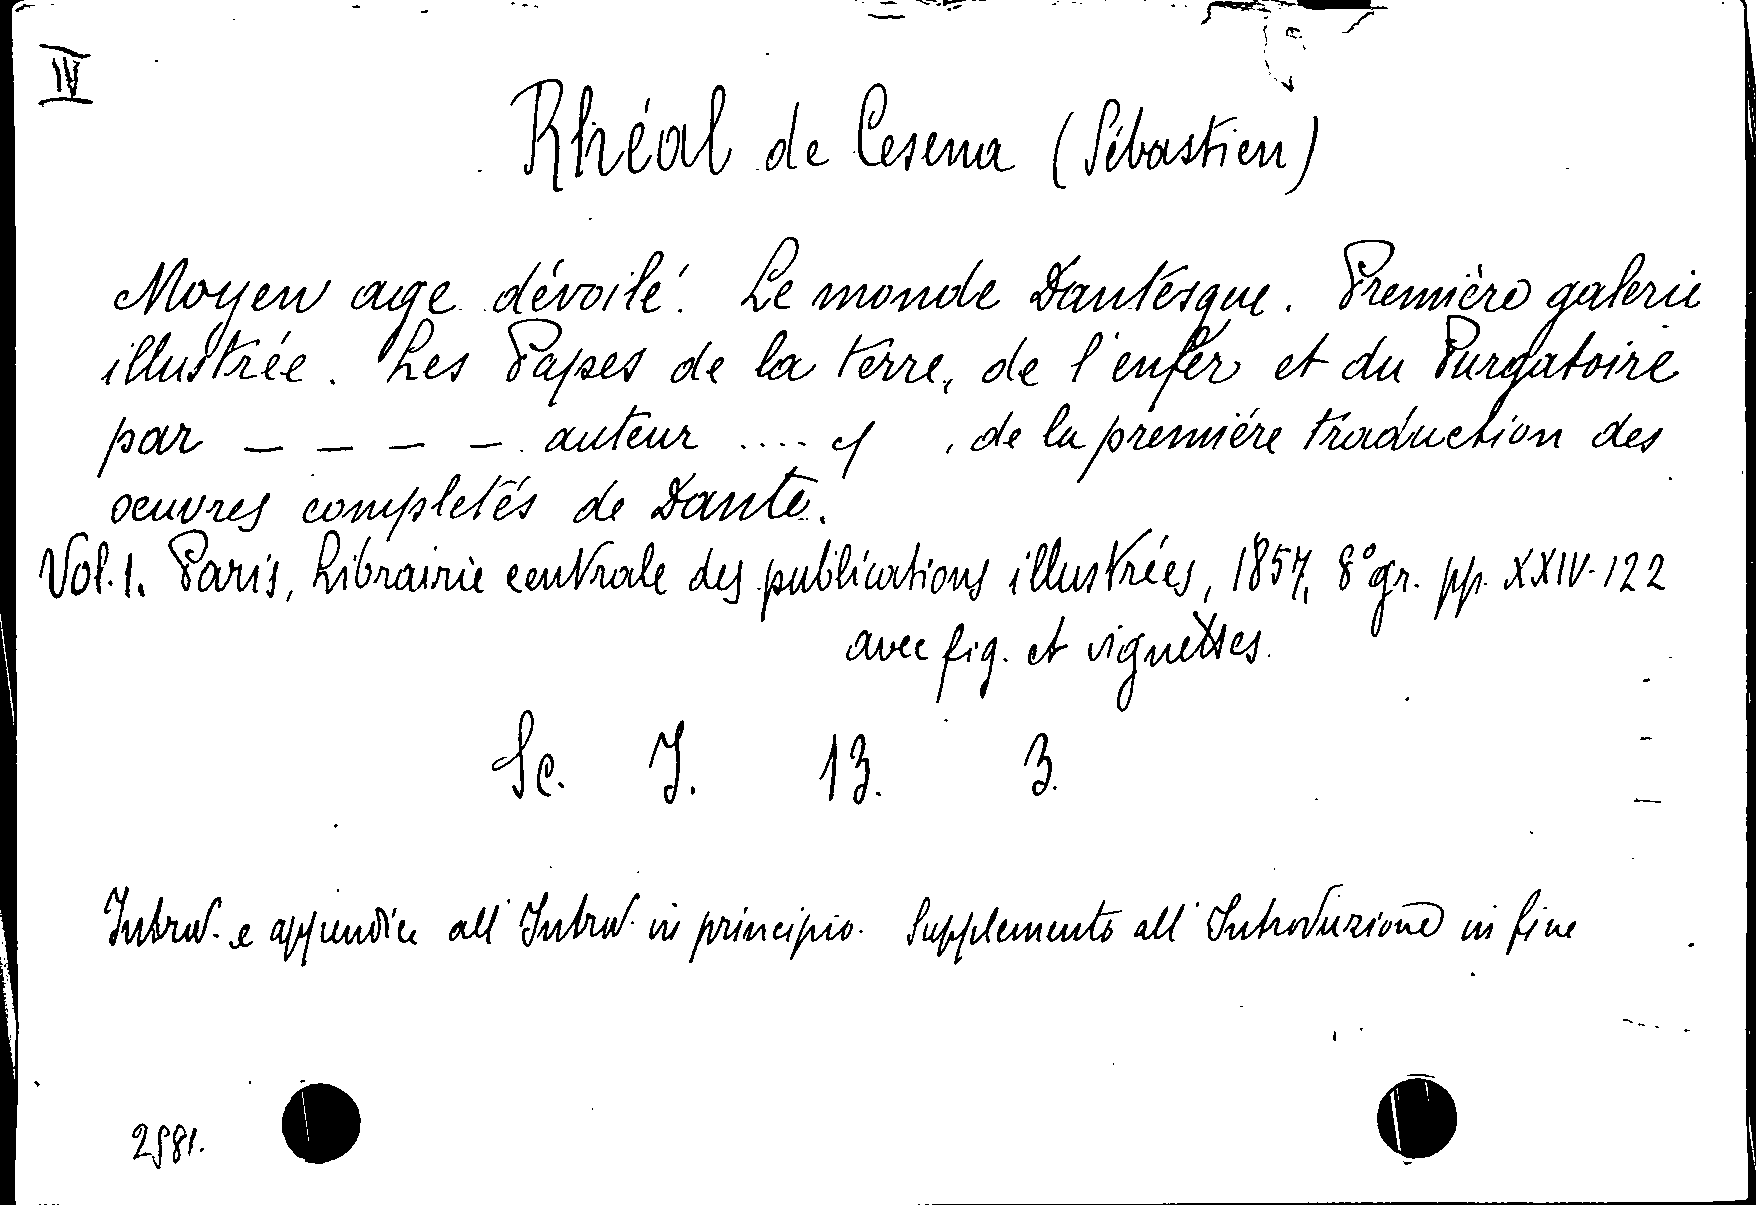 IV
Rhéal de Cesena (Sébastien)
Moyen age dévoilé. Le monde Dantésque. Première galerie
illustrée. Les Papes de la terre, de l'enfer et du Purgatoire
par _ _ _ _ auteur .... , de la première traduction des
oeuvres completés de Dante.
Vol. 1. Paris, Librairie centrale des publications illustrées, 1857, 8° gr. pp. XXIV-122
avec fig. et vignettes.
Sc. I. 13. 3.
Introd. e appendice all' Introd. in principio. Supplemento all' Introduzione in fine
2581.